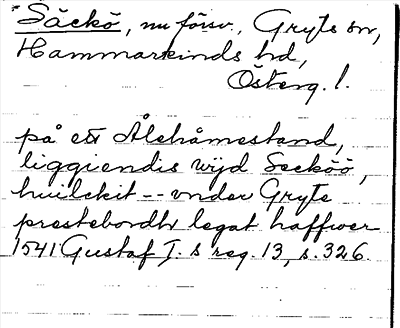 *Säckö, nu försv., Gryts sn,
Hammarkinds hd,
Österg. l.
på ett Ålehåmestand,
liggiendis wijd Seeköö,
huilckit -- vnder Gryte
prestebordh legat haffwer
1541 Gustaf I.s reg. 13, s. 326.